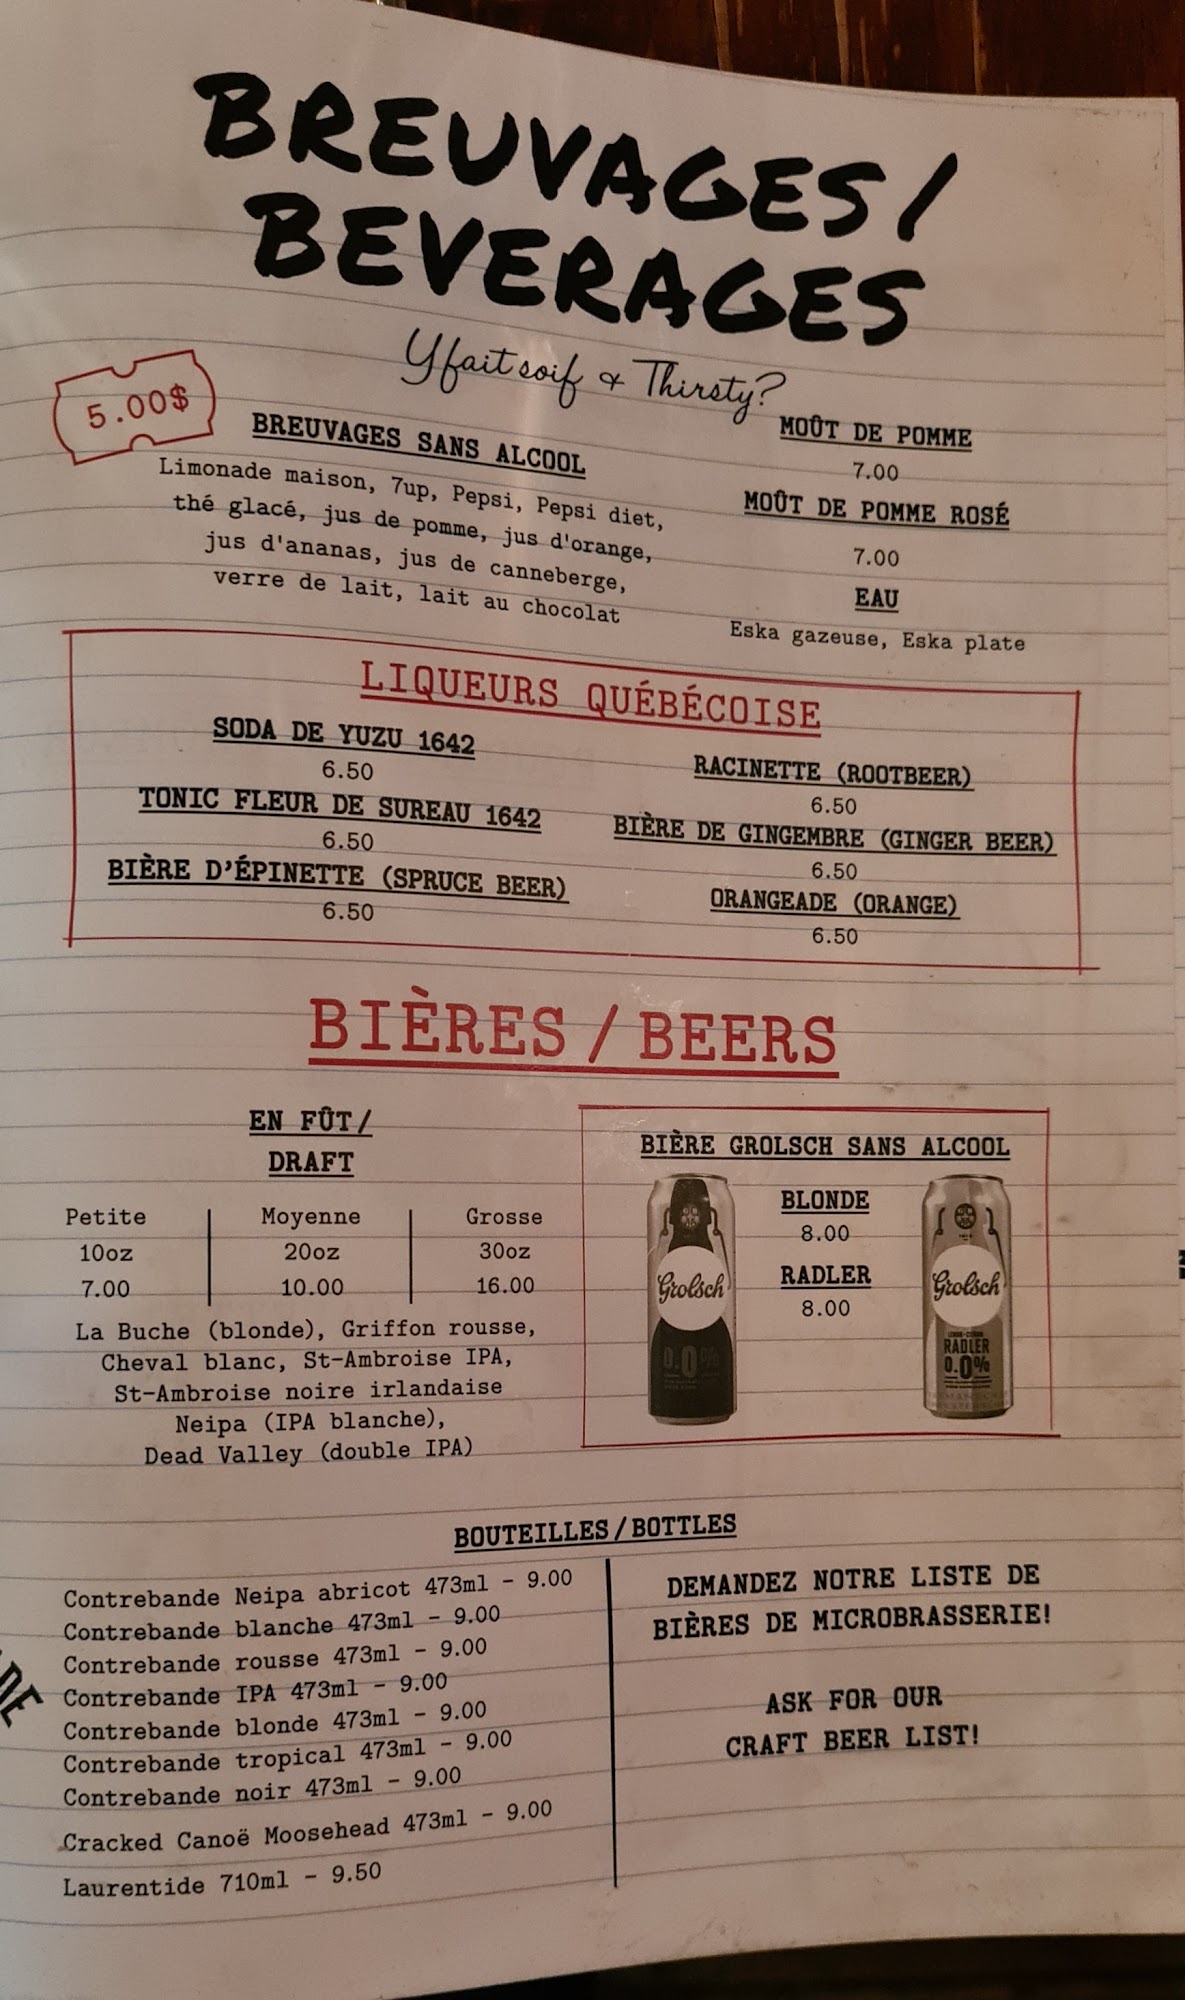 BREUVAGES/
BEVERAGES
Y fait soif & Thirsty?
5.00$
BREUVAGES SANS ALCOOL
Limonade maison, 7up, Pepsi, Pepsi diet,
thé glacé, jus de pomme, jus d'orange,
jus d'ananas, jus de canneberge,
verre de lait, lait au chocolat
MOÛT DE POMME
7.00
MOÛT DE POMME ROSÉ
7.00
EAU
Eska gazeuse, Eska plate
LIQUEURS QUÉBÉCOISE
SODA DE YUZU 1642
6.50
TONIC FLEUR DE SUREAU 1642
6.50
BIÈRE D'ÉPINETTE (SPRUCE BEER)
6.50
RACINETTE (ROOTBEER)
6.50
BIÈRE DE GINGEMBRE (GINGER BEER)
6.50
ORANGEADE (ORANGE)
6.50
BIÈRES / BEERS
EN FÛT/
DRAFT
Petite
10oz
7.00
Moyenne
20oz
10.00
Grosse
30oz
16.00
La Buche (blonde), Griffon rousse,
Cheval blanc, St-Ambroise IPA,
St-Ambroise noire irlandaise
Neipa (IPA blanche),
Dead Valley (double IPA)
BIÈRE GROLSCH SANS ALCOOL
BLONDE
8.00
RADLER
8.00
Grolsch
0.0%
Grolsch
RADLER
0.0%
BOUTEILLES/BOTTLES
Contrebande Neipa abricot 473ml - 9.00
Contrebande blanche 473ml - 9.00
Contrebande rousse 473ml - 9.00
Contrebande IPA 473ml - 9.00
Contrebande blonde 473ml - 9.00
Contrebande tropical 473ml - 9.00
Contrebande noir 473ml - 9.00
Cracked Canoë Moosehead 473ml - 9.00
Laurentide 710ml - 9.50
DEMANDEZ NOTRE LISTE DE
BIÈRES DE MICROBRASSERIE!
ASK FOR OUR
CRAFT BEER LIST!